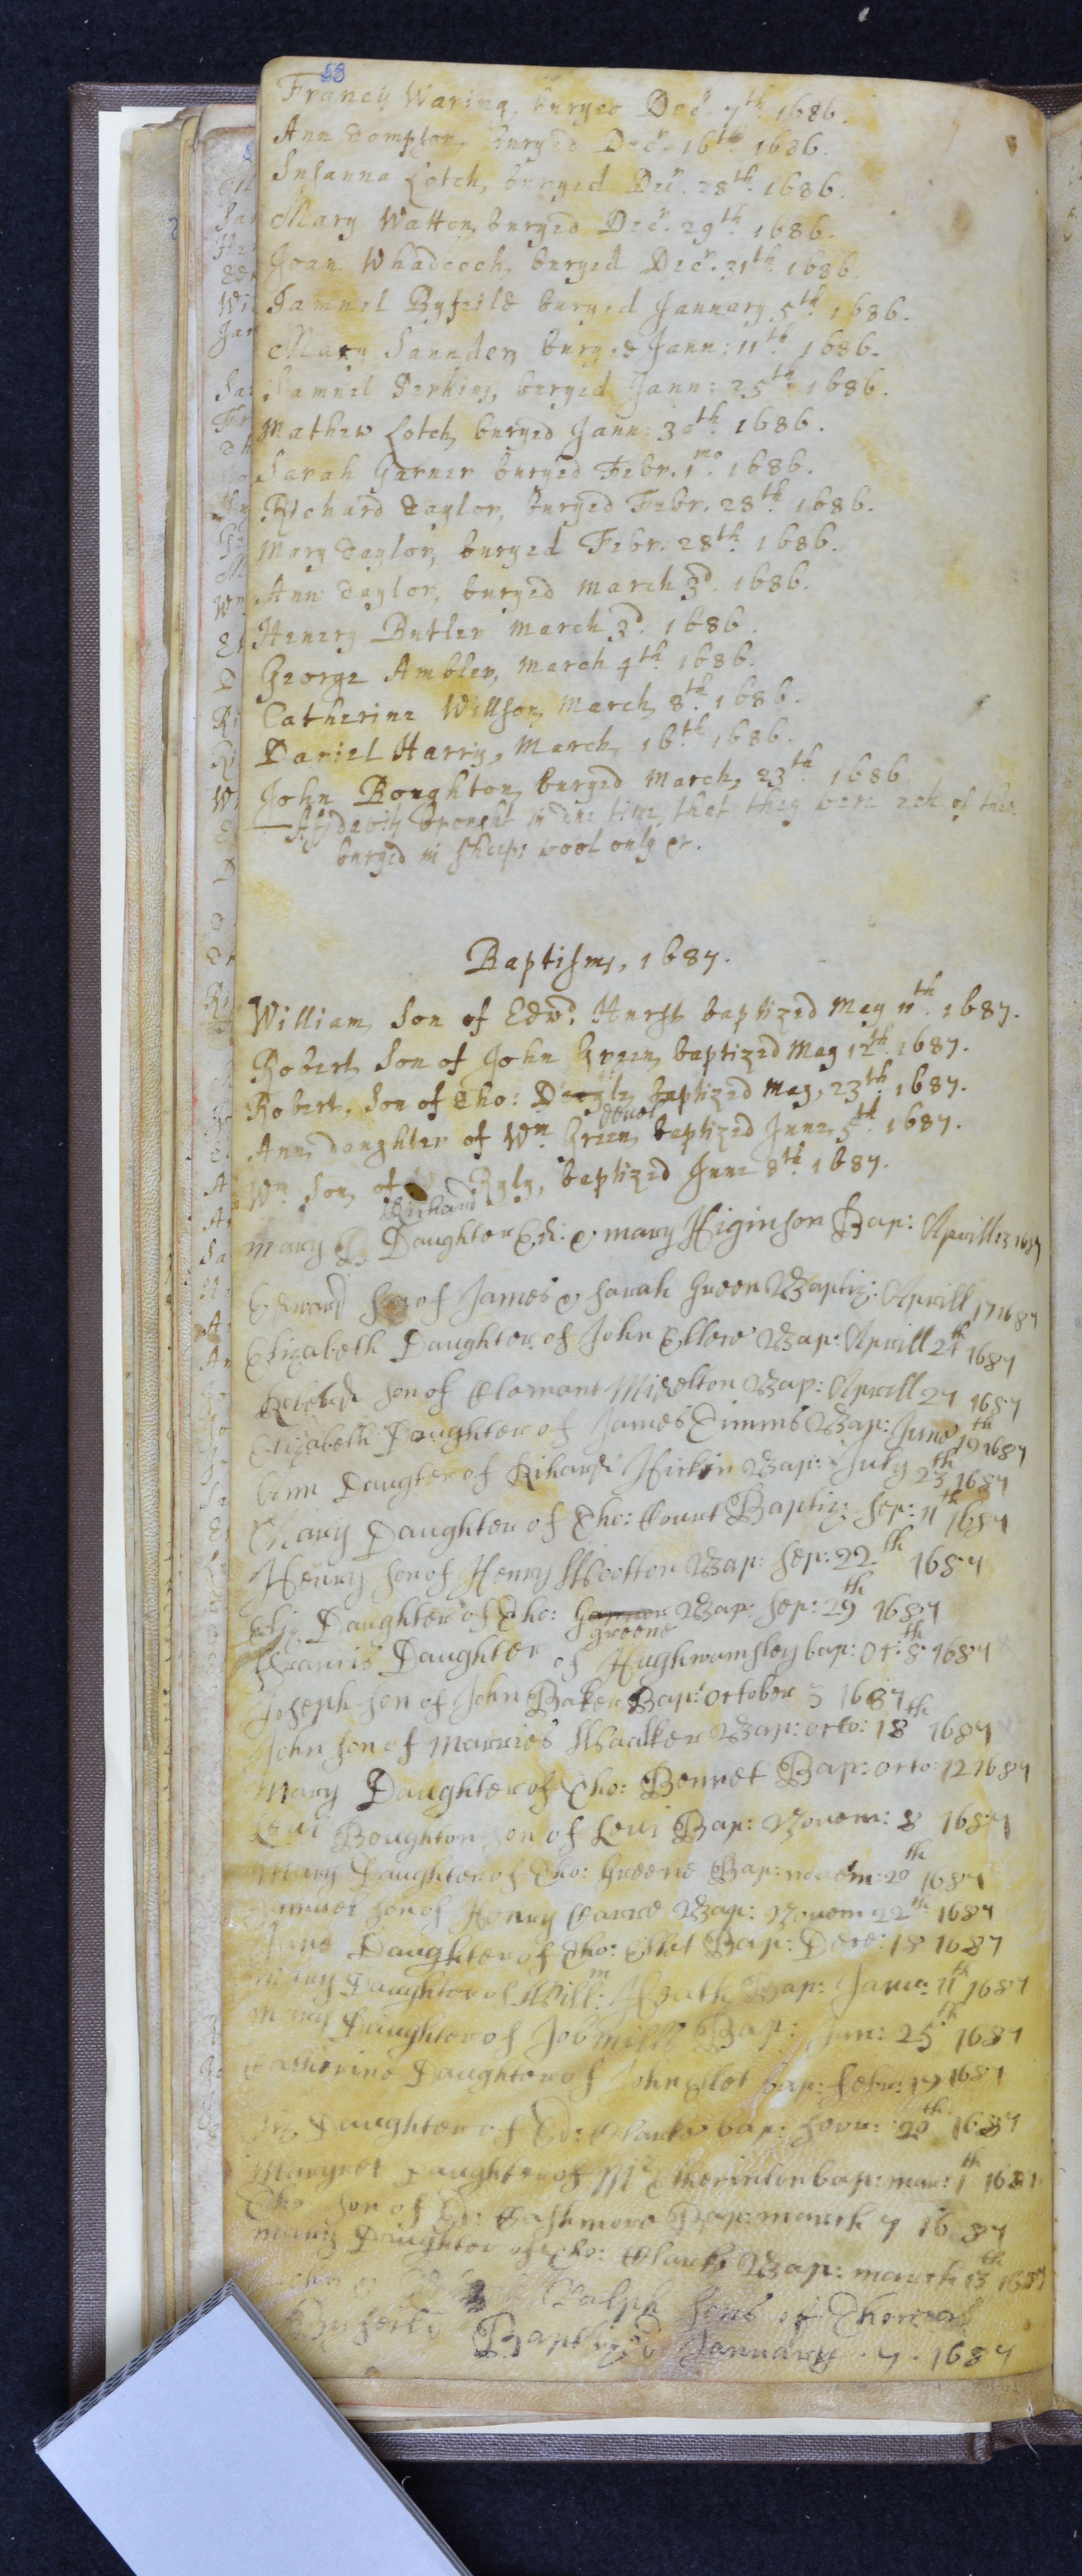 58
Francis Waring, buryed Decr. 7th 1686.
Ann Tompson, buryed Decr. 16th 1686.
Susanna Lotch, buryed Decr. 28th 1686.
Mary Watton, buryed Decr. 29th 1686.
Joan Whadcock, buryed Decr. 31th 1686.
Samuel Byfeild buryed January 5th 1686.
Mary Saunders buryed Janu: 11th 1686.
Samuel Perkins, buryed Janu: 25th 1686.
Mathew Lotch, buryed Janu: 30th 1686.
Sarah Garner buryed Febr. 1mo 1686.
Richard Taylor, buryed Febr. 28th 1686.
Mary Taylor, buryed Febr. 28th 1686.
Ann Taylor, buryed March 3d. 1686.
Henery Butler March 3d. 1686.
George Ambler, March 4th 1686.
Catherine Willson, March 8th 1686.
Daniel Harris, March, 16th 1686.
John Boughton, buryed March, 23th 1686.
Affidavits brought in due time, that they were ech of them
buryed in sheeps wool only &c.
Baptisms, 1687.
William, Son of Edwd. Hurst baptized May 11th 1687.
Robert, Son of John Green, baptized May 12th 1687.
Robert, Son of Tho: baptized May, 23th 1687.
Ann, doughter of Wm Green, baptized June, 5th 1687.
Wm Son, of Ryly, baptized June 8th 1687.
Richard
Mary Daughter & mary Higinson Bap: Aprill 13 1687
Edward son of James & sarah Green Baptiz: Aprill 17 1687
Elizabeth Daughter of John Bap: Aprill 24th 1687
son of Clamant Midelton Bap: Aprill 27 1687
Elizabeth Daughter of James Timms Bap: June 19th 1687
Daugter of Rihard Hickin Bap: July 23th 1687
Mary Daughter of Tho: Court Baptiz: Sep: 11th 1687
Henry son of Henry Wootton Bap: Sep: 22th 1687
Eliz Daughter of Tho: Bap: Sep: 29th 1687
greene
Francis Daughter of Hugh wamsley bap: oc: 8th 1687
Joseph son of John Baker Bap: October 3 1687
John son of Marries Waalker Bap: octo: 18th 1687
Mary Daughter of Tho: Bennet Bap: octo: 12 1687
Levi Boughton son of Levi Bap: Novem: 8 1687
Mary Daughter of Tho: Greene Bap: novem: 20th 1687
Samuel son of Henry Bap: Novem 22th 1687
Jane Daughter of Tho: Bap: Dece: 18 1687
Mary Daughter of Willm: Heath Bap: Janu: 11th 1687
Mary Daughter of Job mills Bap: Jan: 25th 1687
Catherine Daughter of John bap: febu: 19 1687
Daughter of Ed: Clarke bap: 20th 1687
Margret Daughter of Mr bap: mar: 1th 1687
Tho son of Ed: Cashmore Bap: march 7 1687
mary Daughter of Tho: Clarke Bap: march 13th 1687
Ralph sons of Thomas
Byfeild Baptized January . 7 . 1687